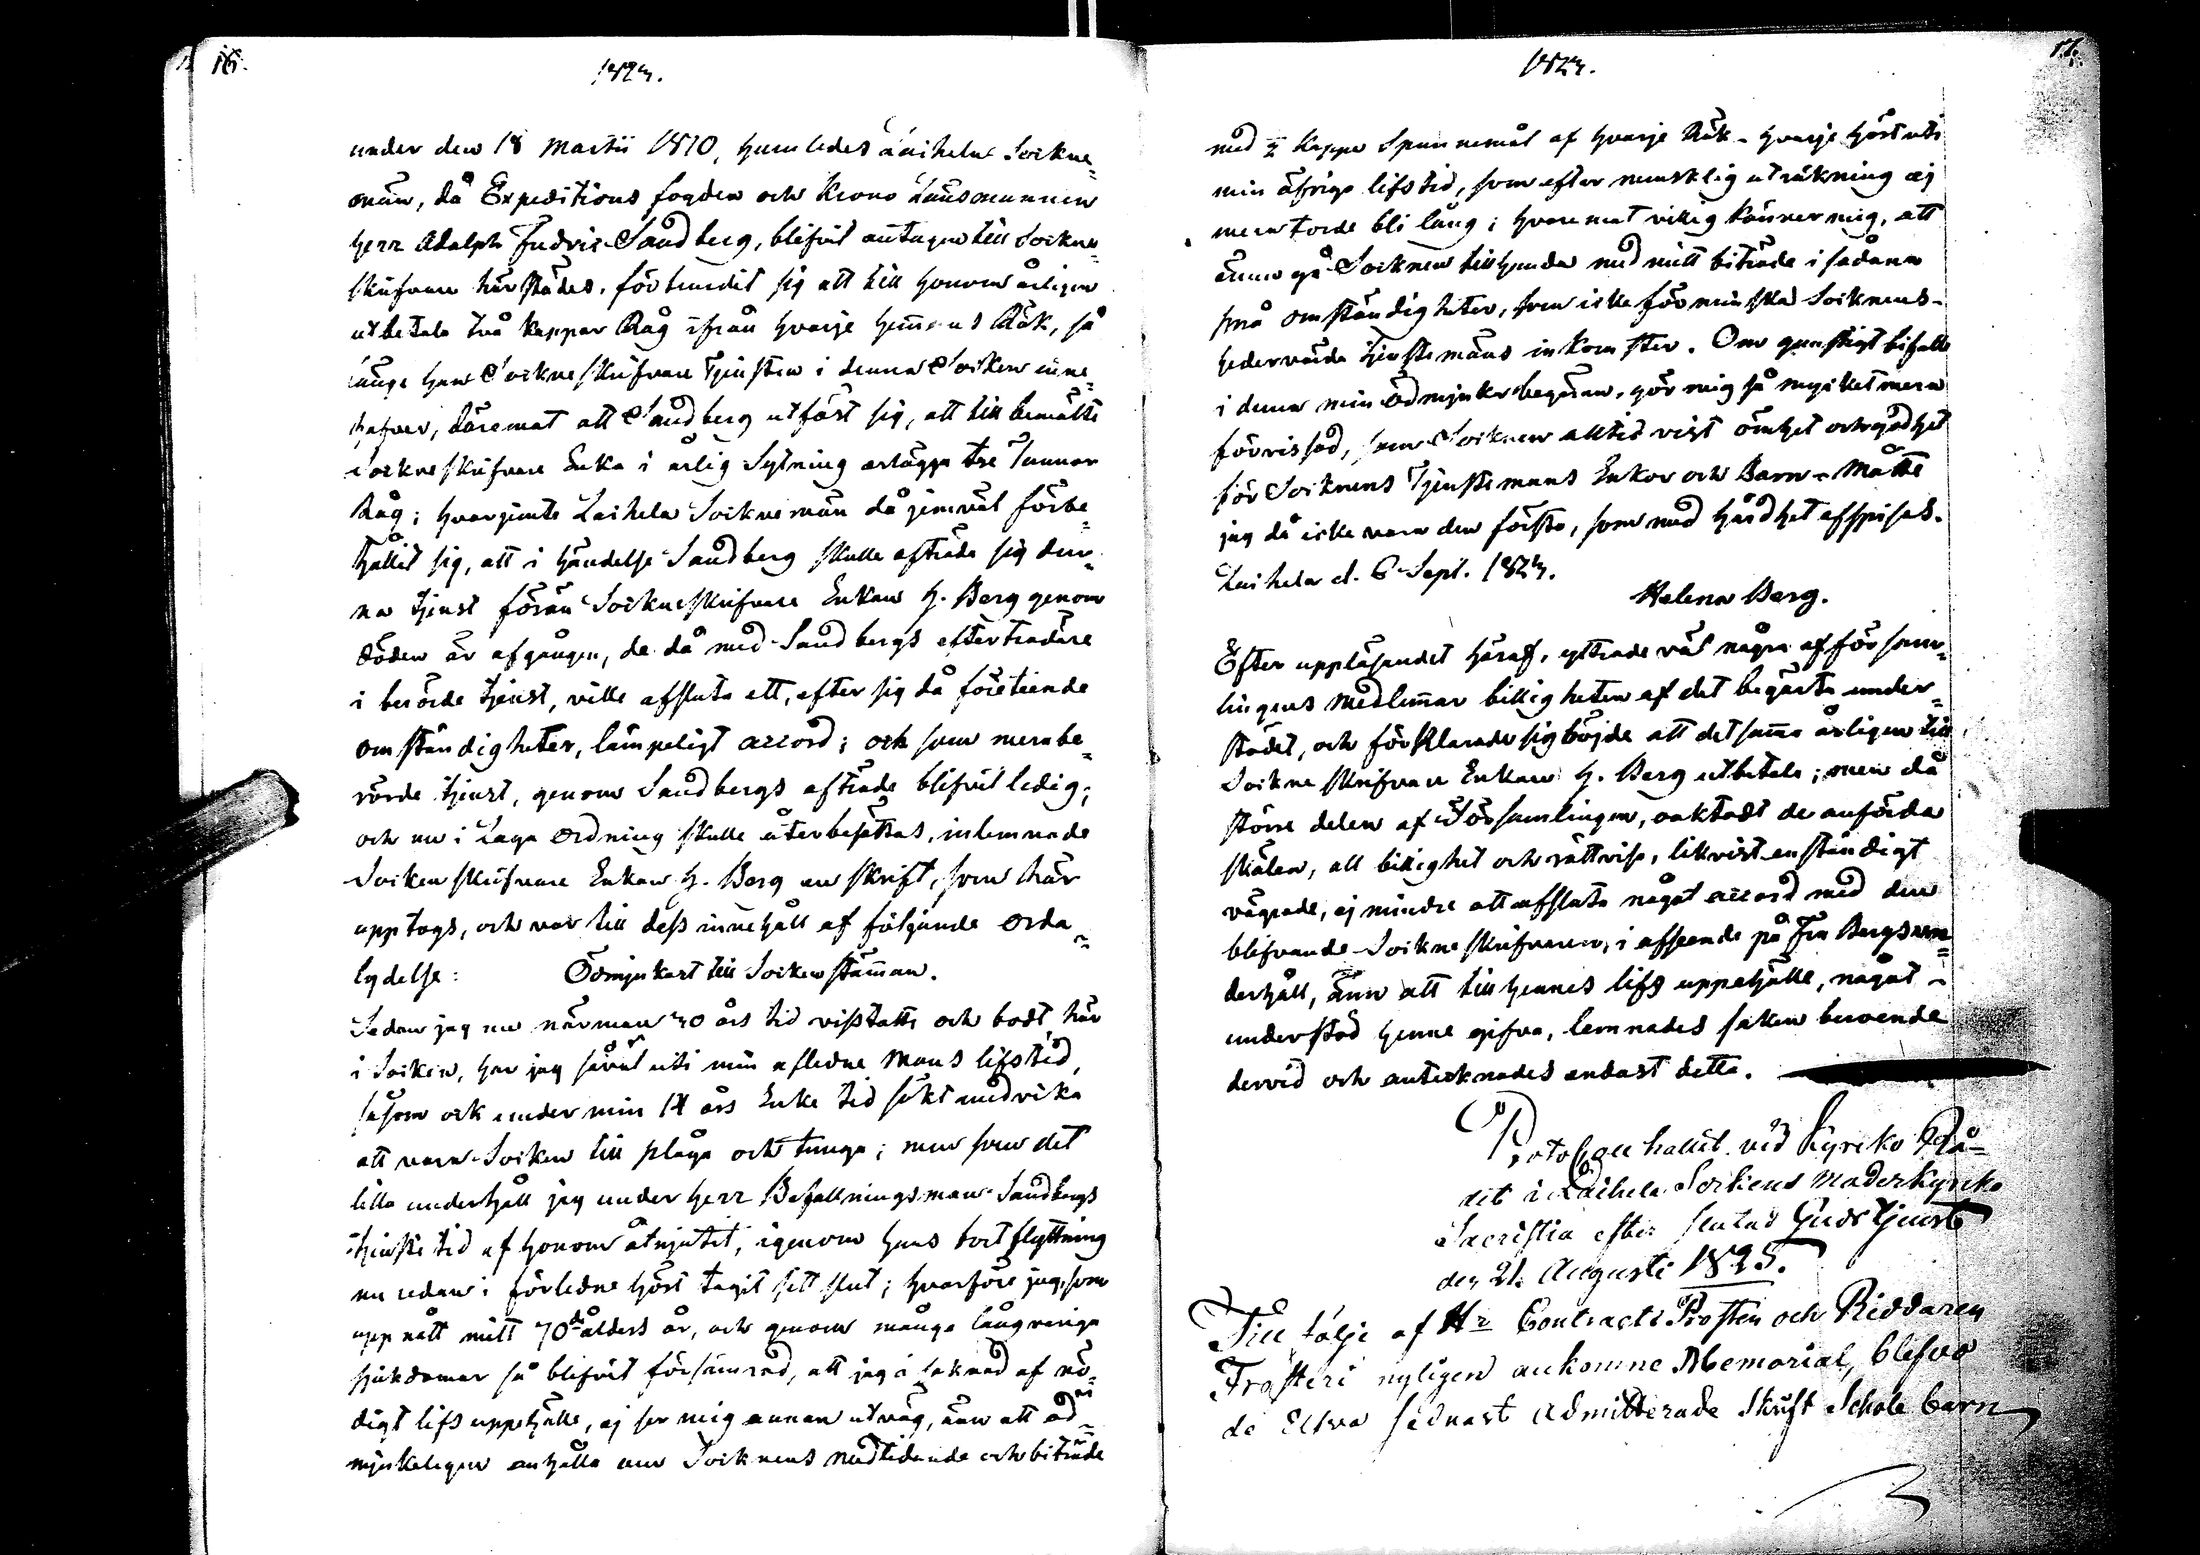 16.
1824.
under den 18 Martii 1810, huruledes Laihela Sockne=
män, då Expeditions fogden och Krono Länsmannen
Herr Adolph Fredric Sandberg, blifvit antagen till Sockne=
skrifvare härstädes, förbundit sig att till honom årligen
utbetala två kappar Råg ifrån hvarje hemmans Rök, så
länge han Sockneskrifvare Tjensten i denna Socken inne=
hafver, däremot att Sandberg utfäst sig, att till bemälte
Sockneskrifvare Enka i årlig Sytning erlägga tre Tunnor
Råg; hvarjemte Laihela Socknemän då jemväl förbe=
hållit sig, att i händelse Sandberg skulle afträda sig den=
na tjenst förän Sockneskrifvare Enkan H. Berg genom
döden är afgången, de då med Sandbergs efterträdare
i berörde tjenst, ville afsluta ett, efter sig då företeende
omständigheter, lämpeligt accord; och som merabe=
rörde tjenst, genom Sandbergs afträde blifvit ledig;
och nu i Laga Ordning skulle återbesättas, inlemnade
Sockenskrifvare Enkan H. Berg en skrift, som här
upptogs, och var till dess innehåll af följande orda=
lydelse: Ödmjukast till Sockenstämman.
Sedan jag nu närmare 40 års tid vistatts och bodt här
i Socken, har jag såväl uti min aflidne Mans lifstid,
såsom ock under min 14 års Enke tid sökt undvika
att vara Socken till plåga och tunga; men som det
lilla underhåll jag under Herr Befallningsman Sandbergs
tjenste tid af honom åtnjutit, igenom hans bortflyttning
nu redan i förledne höst tagit sitt slut; hvarföre jag, som
uppnått mitt 70de ålders år, och genom många långvariga
sjukdomar så blifvit försämrad, att jag i saknad af nö=
digt lifs uppehälle, ej ser mig annan utväg, änn att öd=
mjukeligen anhålla om Socknens medlidande och biträde
17.
1824.
med ½ kappe Spannemål af hvarje Rök hvarje höst uti
min öfriga lifstid, som efter mensklig uträkning ej
mera torde bli lång; hvaremot villig känner mig, att
ännu gå Socknen tillhanda med mitt biträde i sådana
små omständigheter, som icke förminskar Socknens
hedervärda tjenstemäns inkomster. Om gunstigt bifall
i denna min ödmjuka begäran, gör mig så mycket mera
förvissad, som Socknen alltid vist ömhet och godhet
för Socknens Tjenstemans Enkor och Barn. Måtte
jag då icke vara den första, som med hårdhet afspisas.
Laihela d. 6 Sept. 1824.
Helena Berg.
Efter uppläsandet häraf, yttrade väl några af försam=
lingens Medlemmar billigheten af det begärta under=
stödet, och förklarade sig böjde att detsamma årligen till
Sockne skrifvare Enkan H. Berg utbetala; men då
större delen af Församlingen, oaktadt de anförda
skälen, all billighet och rättvisa, likvist enständigt
vägrade, ej mindre att afsluta något accord med den
blifvande Sockneskrifvaren, i afseende på Fru Bergs un=
derhåll, änn att till hennes lifs uppehälle, något
understöd henne gifva, lemnades saken beroende
dervid och antecknades endast detta.
Protocoll hållit vid Kyrcko Rå=
dit i Laihela Sockens Moderkyrcko
Sacristia efter slutad Gudstjenst
den 21. Augusti 1825.
Till följe af Hr Contracts Prosten och Riddaren
Frosteri nyligen ankomne Memorial, blefvo
de Elfva sednast admitterade Skrift Schole barn